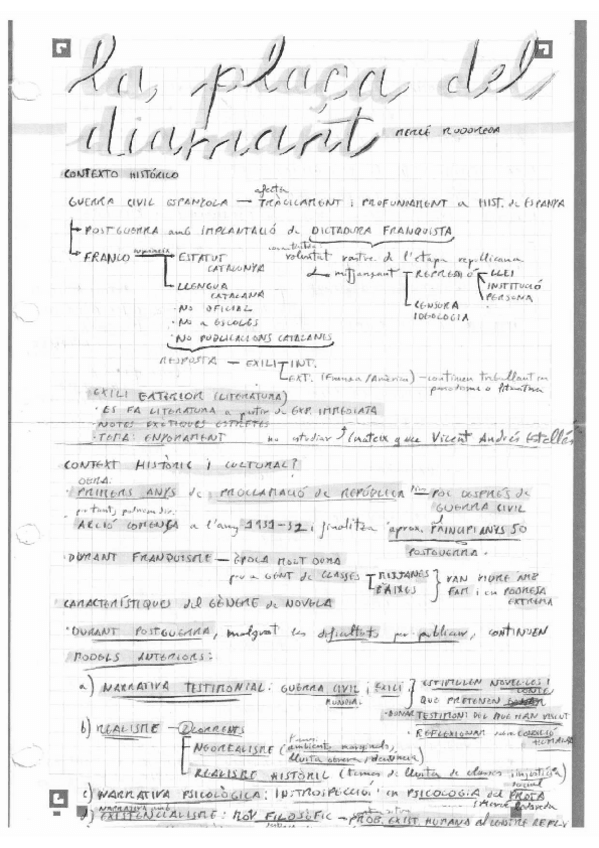 la plaça del
diamant MERCÈ RODOREDA
CONTEXTO HISTÓRICO
afecta
GUERRA CIVIL ESPANYOLA — TRÀGICAMENT i PROFUNDAMENT a HIST. de ESPANYA
→ POSTGUERRA amb IMPLANTACIÓ de DICTADURA FRANQUISTA
→ FRANCO → ESTATUT voluntat de l'etapa republicana
CATALUNYA mitjançant REPRESSIÓ LLEI
LLENGUA INSTITUCIÓ
CATALANA CENSURA PERSONA
· NO OFICIAL IDEOLOGIA
· NO a ESCOLES
· NO PUBLICACIONS CATALANES
RESPOSTA — EXILI INT.
EXT. (França/Amèrica) — continuen treballant en
EXILI EXTERIOR (LITERATURA)
· ES FA LITERATURA a partir de EXP. IMMEDIATA
· NOTES EXÒTIQUES ESTRETES
· TEMA: ENYORAMENT no estudiar (mateix que Vicent Andrés Estellés
CONTEXT HISTÒRIC i CULTURAL?
OBRA:
· PRIMERS ANYS de PROCLAMACIÓ de REPÚBLICA — fins POC DESPRÉS de
GUERRA CIVIL
· ACCIÓ COMENÇA a l'any 1931-32 i finalitza aprox. PRINCIPI ANYS 50
POSTGUERRA.
· DURANT FRANQUISME — ÈPOCA MOLT DURA
per a GENT de CLASSES MITJANES } VAN VIURE AMB
BAIXES FAM i en POBRESA
EXTREMA
CARACTERÍSTIQUES del GÈNERE de NOVELA
· DURANT POSTGUERRA, malgrat les dificultats per publicar, CONTINUEN
MODELS ANTERIORS:
a) NARRATIVA TESTIMONIAL: GUERRA CIVIL i EXILI } ESTIMULEN NOVEL·LES i
MUNDIAL QUE PRETENEN
· DONAR TESTIMONI DEL QUE HAN VISCUT
· REFLEXIONAR CONDICIÓ
HUMANA
b) REALISME — 2 CORRENTS
NEOREALISME (ambients marginals,
lluita obrera
REALISME HISTÒRIC (temes de lluita de classes
c) NARRATIVA PSICOLÒGICA: INTROSPECCIÓ en PSICOLOGIA del PROTA
(Mercè Rodoreda
NARRATIVA amb
d) EXISTENCIALISME: MOV FILOSÒFIC — PROB. EXIST HUMANA